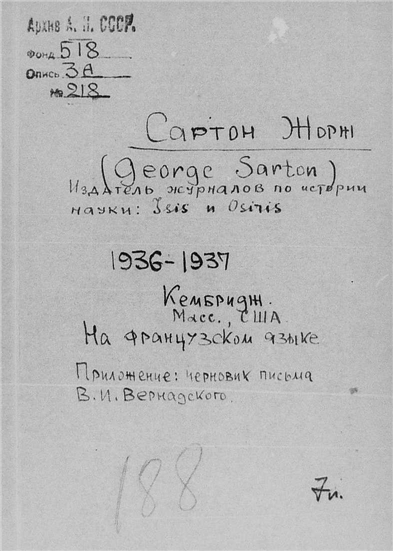 Архив А. Н. СССР.
Фонд 518
Опись 3А
№ 218
Сартон Жорж
(George Sarton)
Издатель журналов по истории
науки: Isis и Osiris
1936-1937
Кембридж.
Масс., США.
На французском языке
Приложение: черновик письма
В. И. Вернадского.
188
7л.